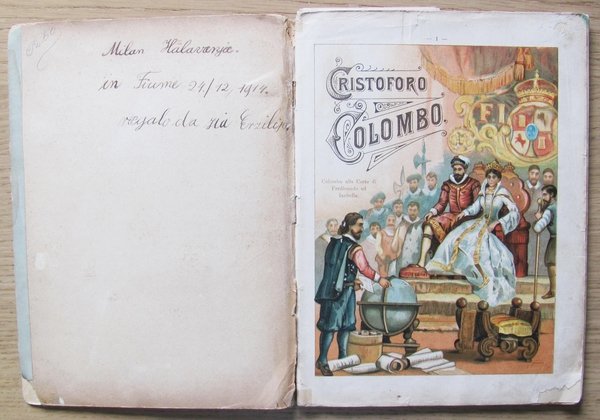 Milan
in Fiume 24/12 1914.
regalo da zia
- 1 -
CRISTOFORO
COLOMBO.
Colombo alla Corte di
Ferdinando ed
Isabella.
F I